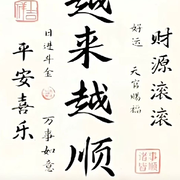 财源滚滚
好运
天官赐福
越来越顺
日进斗金
万事如意
平安喜乐
吉祥
事顺
诸皆